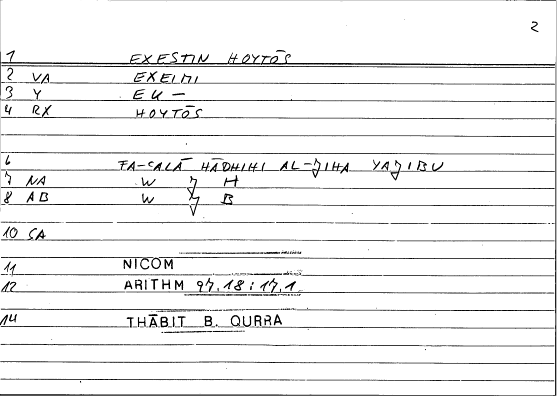 2
1 EXESTIN HOYTŌS
2 VA EXEIMI
3 Y EK —
4 RX HOYTŌS
6 FA-ʿALĀ HĀDHIHI AL-JIHA YAJIBU
7 NA W J H
8 AB W J B
10 SA
11 NICOM
12 ARITHM 97,18 : 17,1
14 THĀBIT B. QURRA